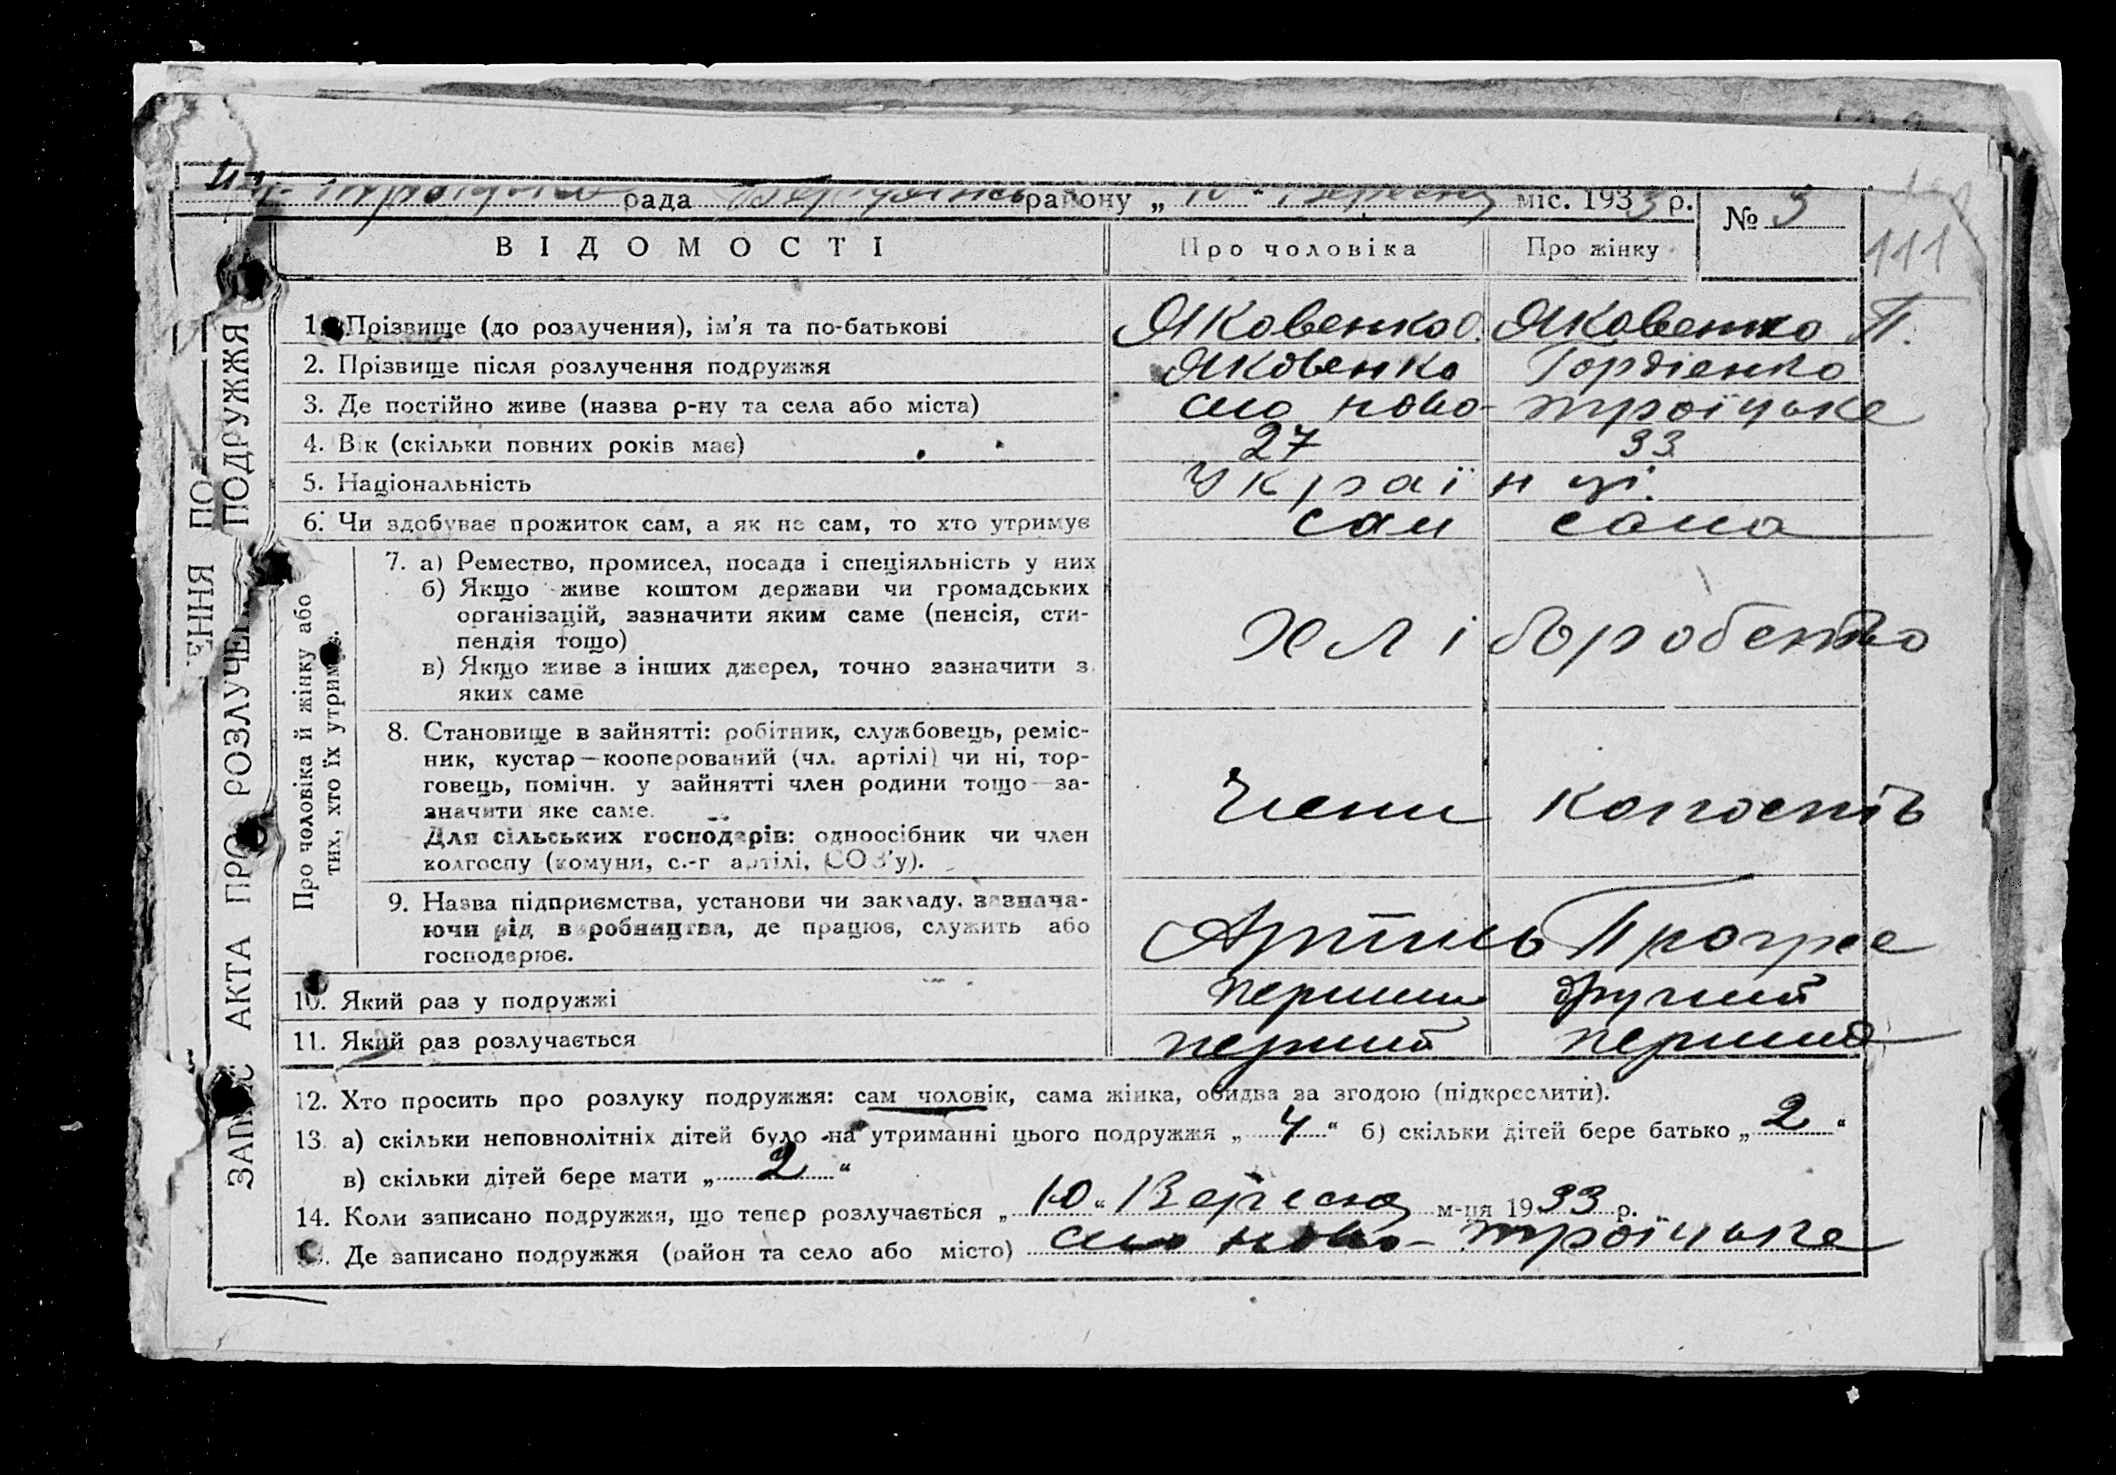 троїцька рада Бердянськ району „ 10 " Вересня міс. 1933 р. № 3
111
ВІДОМОСТІ Про чоловіка Про жінку
1. Прізвище (до розлучення), ім'я та по-батькові Яковенко О. Яковенко П.
2. Прізвище після розлучення подружжя Яковенко Гордіенко
3. Де постійно живе (назва р-ну та села або міста) село ново- троїцьке
4. Вік (скільки повних років має) 27 33
5. Національність Українці.
6. Чи здобуває прожиток сам, а як не сам, то хто утримує сам сама
7. а) Ремество, промисел, посада і спеціяльність у них
б) Якщо живе коштом держави чи громадських
організацій, зазначити яким саме (пенсія, сти-
пендія тощо) хліборобство
в) Якщо живе з інших джерел, точно зазначити з
яких саме
8. Становище в зайнятті: робітник, службовець, реміс-
ник, кустар—кооперований (чл. артілі) чи ні, тор-
говець, помічн. у зайнятті член родини тощо—за-
значити яке саме. Члени
Для сільських господарів: одноосібник чи член
колгоспу (комуни, с.-г артілі, СОЗ'у).
9. Назва підприємства, установи чи закладу, зазнача-
ючи рід виробництва, де працює, служить або Артиль
господарює.
10. Який раз у подружжі перший другий
11. Який раз розлучається перший перший
12. Хто просить про розлуку подружжя: сам чоловік, сама жінка, обидва за згодою (підкреслити).
13. а) скільки неповнолітніх дітей було на утриманні цього подружжя „ 4 " б) скільки дітей бере батько „ 2 "
в) скільки дітей бере мати „ 2 "
14. Коли записано подружжя, що тепер розлучається „ 10 " Вересня м-ця 1933 р.
Де записано подружжя (район та село або місто) село ново- троїцьке
ЗАПИС АКТА ПРО РОЗЛУЧЕН ПОДРУЖЖЯ
ЕННЯ ПО
Про чоловіка й жінку або
тих, хто їх утримує.